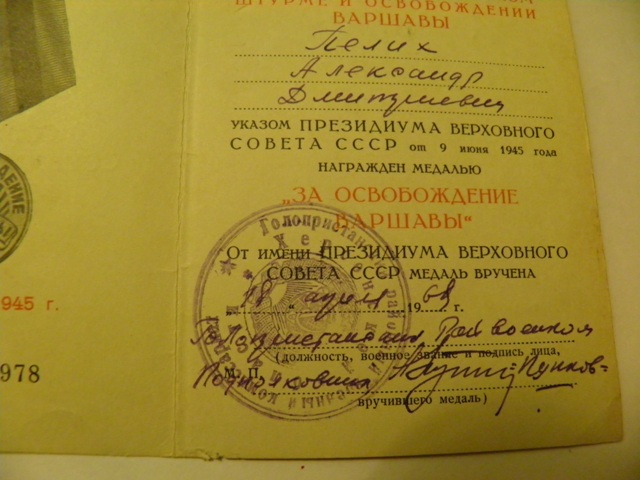 ШТУРМЕ И ОСВОБОЖДЕНИИ
ВАРШАВЫ
Пелих
Александр
Дмитриевич
УКАЗОМ ПРЕЗИДИУМА ВЕРХОВНОГО
СОВЕТА СССР от 9 июня 1945 года
НАГРАЖДЕН МЕДАЛЬЮ
„ЗА ОСВОБОЖДЕНИЕ
ВАРШАВЫ“
От имени ПРЕЗИДИУМА ВЕРХОВНОГО
СОВЕТА СССР МЕДАЛЬ ВРУЧЕНА
„18“ апреля 1969 г.
Голопристанский Райвоенком
(должность, военное звание и подпись лица,
М. П. Подполковник
вручившего медаль)
1945 г.
978